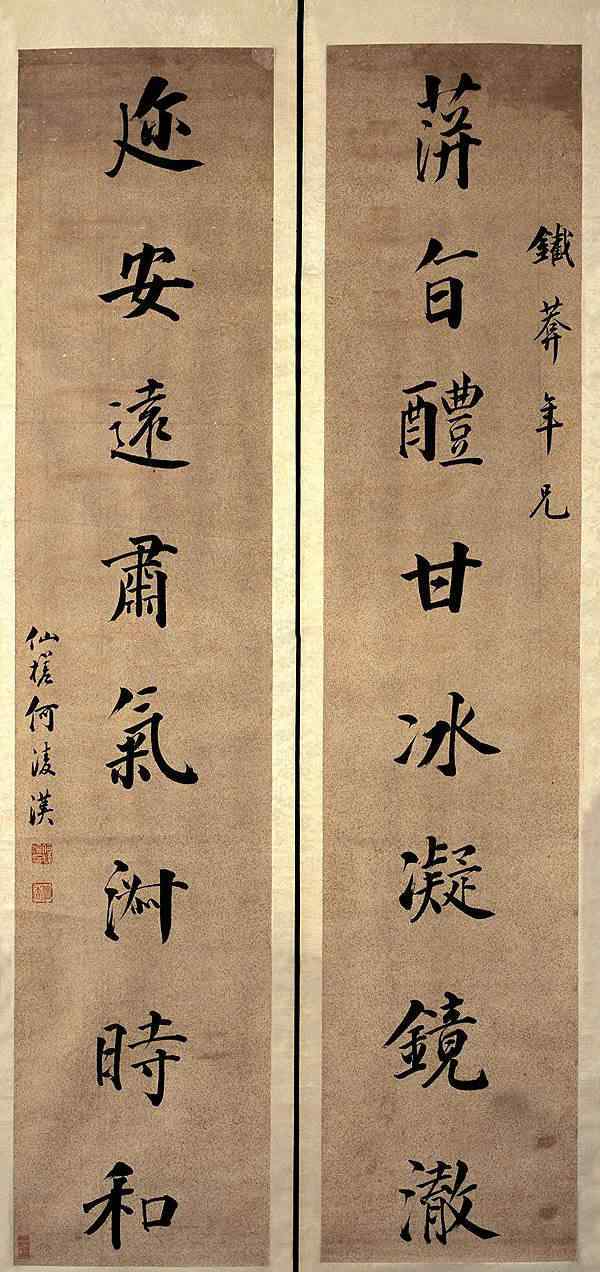 鐵莽年兄
蓱旨醴甘冰凝鏡澈
迩安遠肅氣淑時和
仙槎何淩漢